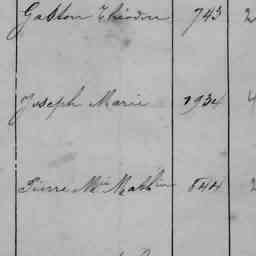 Gaston Théodore 743 2
Joseph Marie 1934 4
Pierre Mie Mathurin 844 2